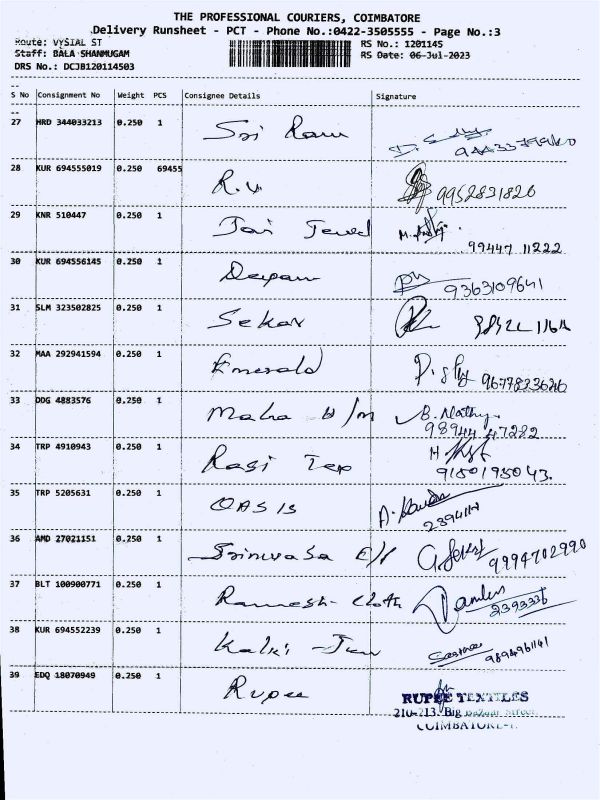 THE PROFESSIONAL COURIERS, COIMBATORE
Delivery Runsheet - PCT - Phone No.:0422-3505555 - Page No.:3
Route: VYSIAL ST RS No.: 1201145
Staff: BALA SHANMUGAM RS Date: 06-Jul-2023
DRS No.: DCJB120114503
S No Consignment No Weight PCS Consignee Details Signature
27 HRD 344033213 0.250 1 Sri Ram
28 KUR 694555019 0.250 69455 R.V. 9952831820
29 KNR 510447 0.250 1 Jai Jewel 99447 11222
30 KUR 694556145 0.250 1 Deepam 9363109641
31 SLM 323502825 0.250 1 Sekar
32 MAA 292941594 0.250 1 Emerald
33 DDG 4883576 0.250 1 Maha B. Mathy
98944 47282
34 TRP 4910943 0.250 1
9150195043.
35 TRP 5205631 0.250 1 OASIS
36 AMD 27021151 0.250 1 Srinivasa 9994702990
37 BLT 100900771 0.250 1 Ramesh Cloth 2393336
38 KUR 694552239 0.250 1 Kalki 9894961141
39 EDQ 18070949 0.250 1 Rupee
RUPEE TEXTILES
210-213. Big Bazaar Street
COIMBATORE-1.